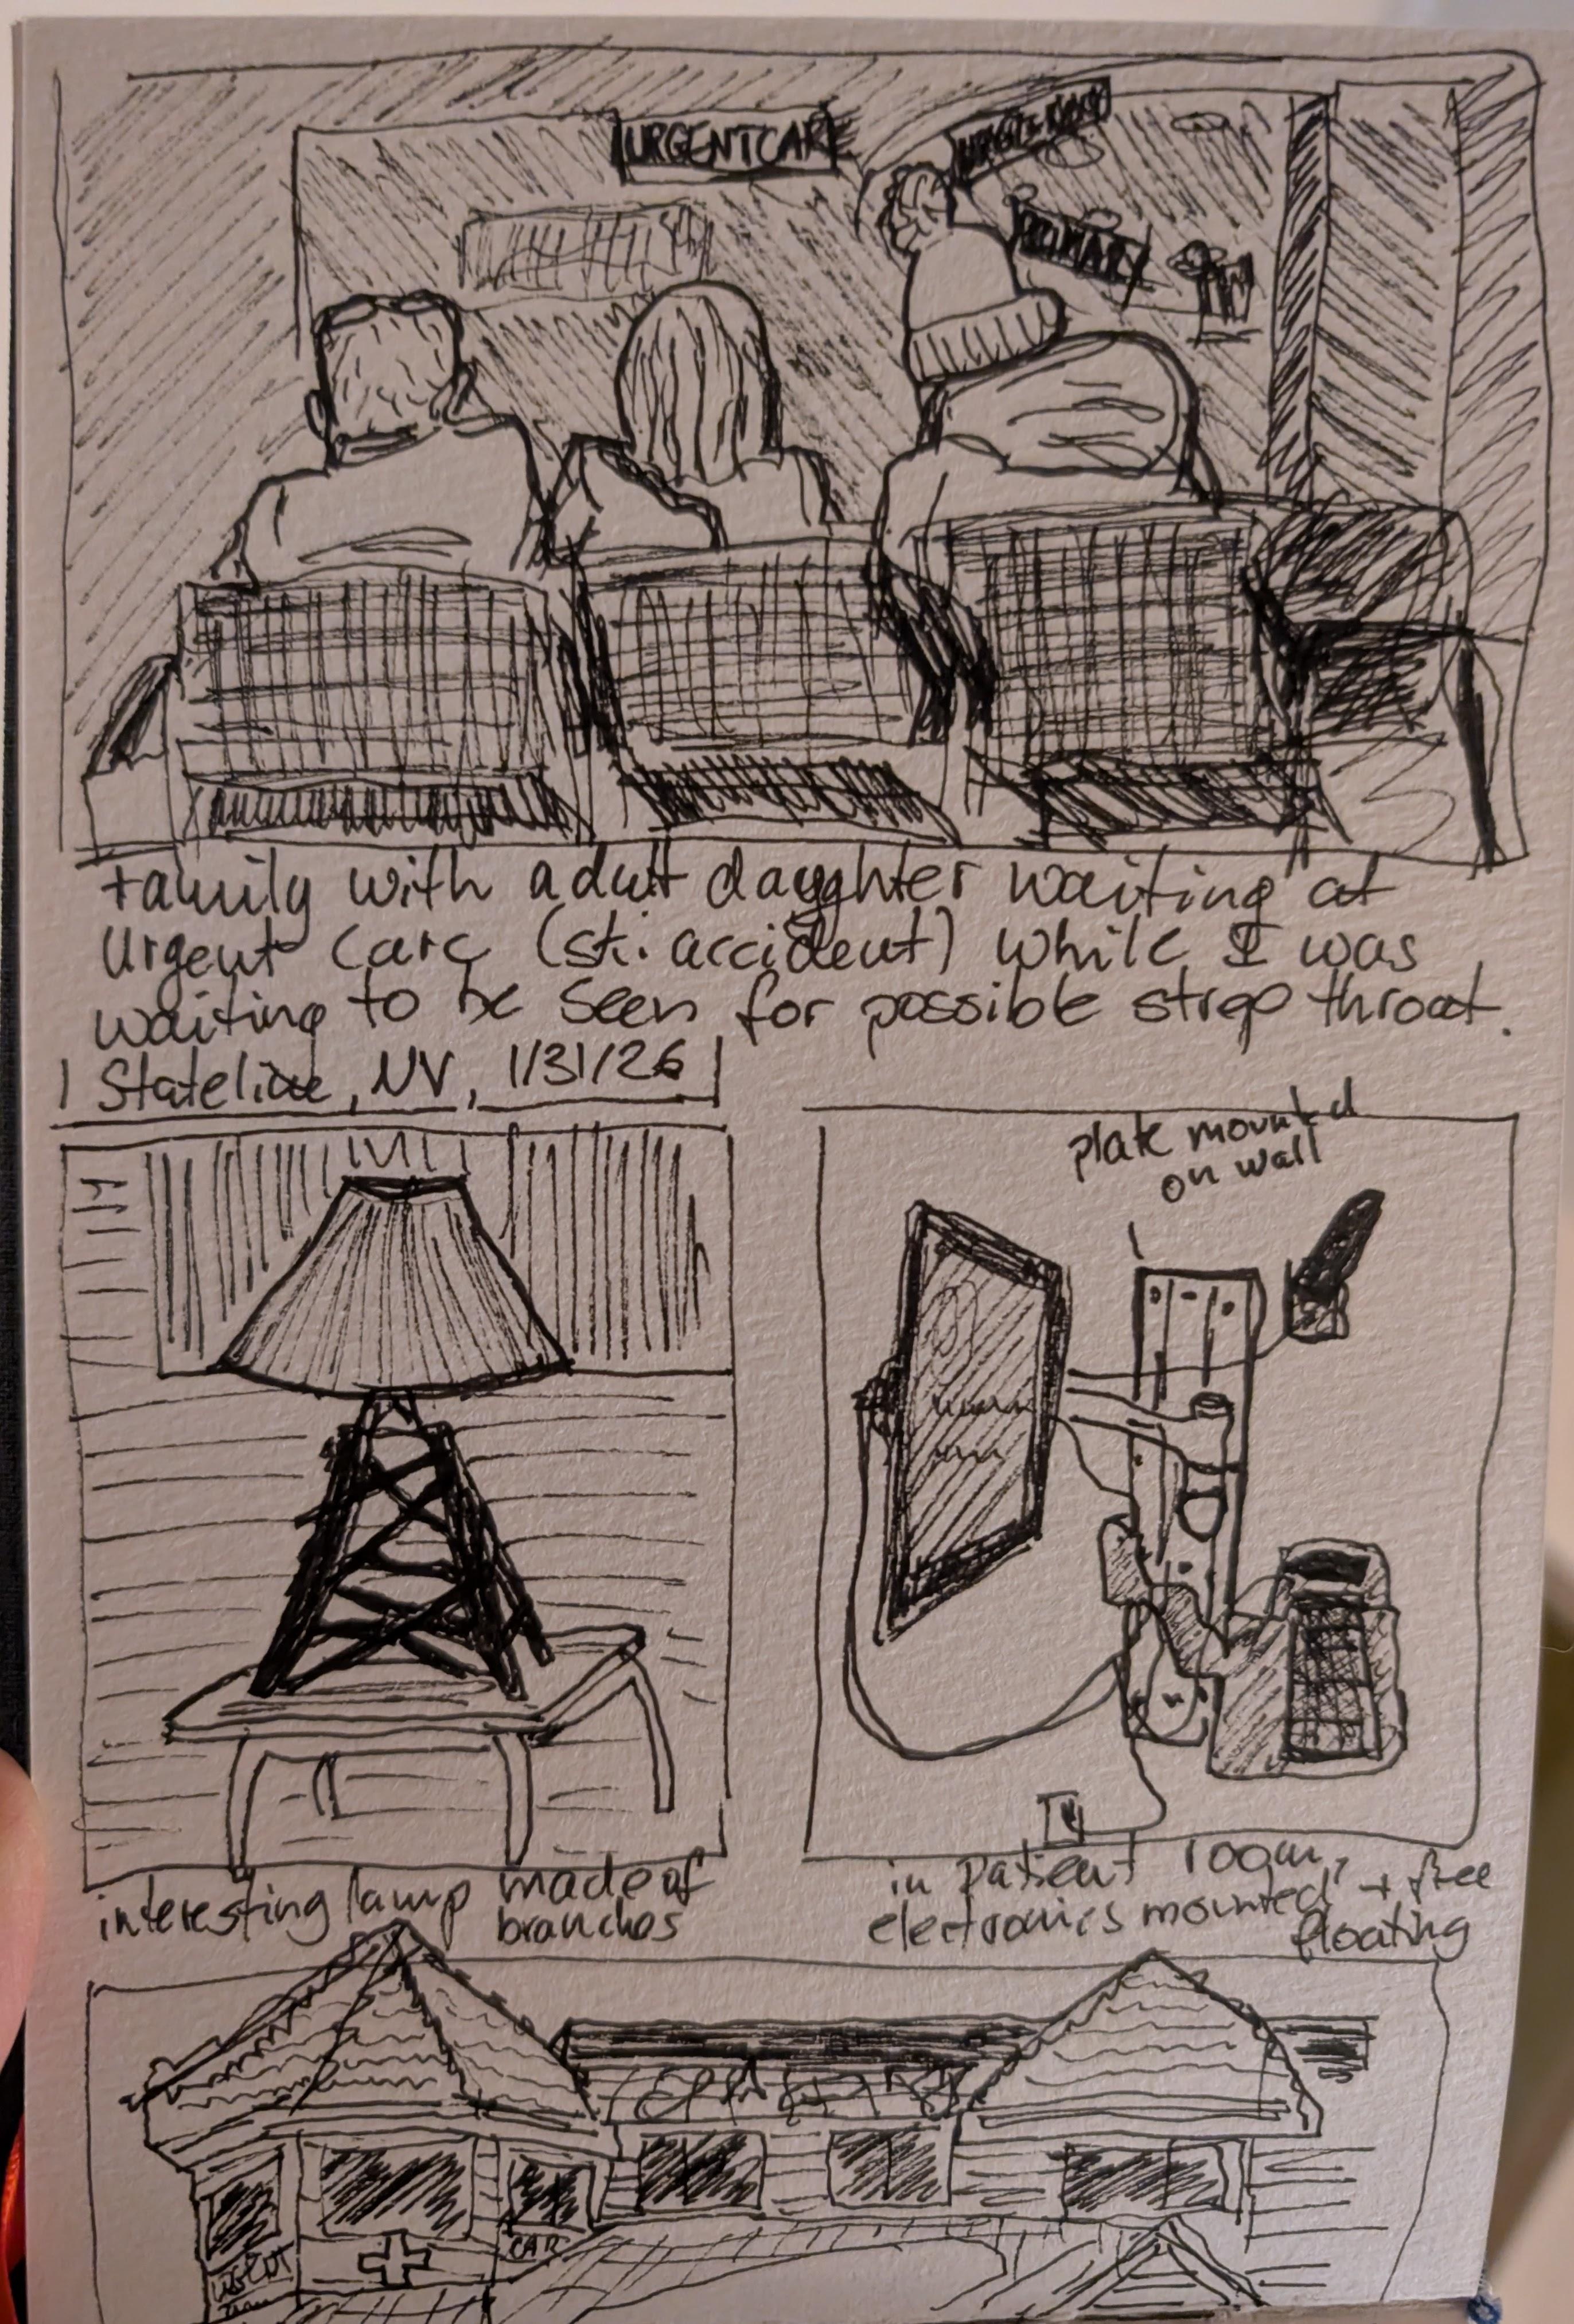 URGENTCARE
Family with adult daughter waiting at
Urgent Care (ski accident) while I was
waiting to be seen for possible strep throat.
Stateline, NV, 1/31/26
plate mounted
on wall
interesting lamp made of
branches
in Patient room,
electronics mounted + free
floating
CAR